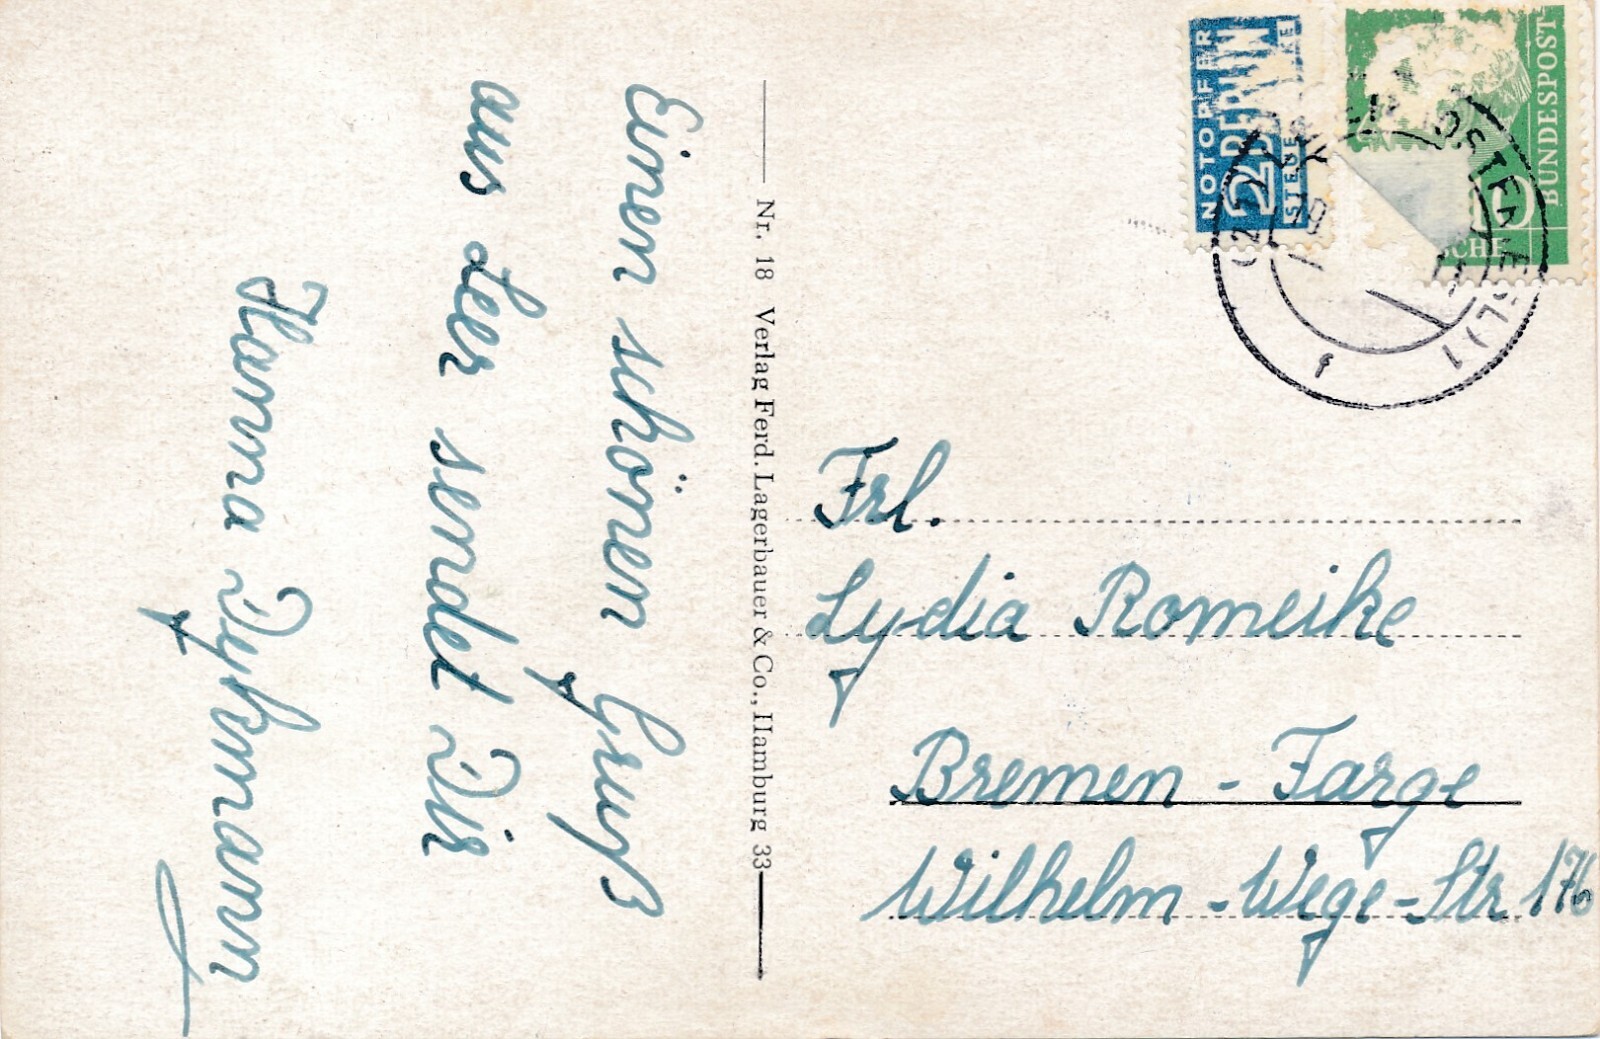 Einen schönen Gruß
aus Leer sendet Dir
Hanna Dykmann
Nr. 18 Verlag Ferd. Lagerbauer & Co., Hamburg 33
NOTOPFER
2 BERLIN
STEUERMARKE
BUNDESPOST
10
Frl.
Lydia Romeike
Bremen - Farge
Wilhelm - Wege - Str 176